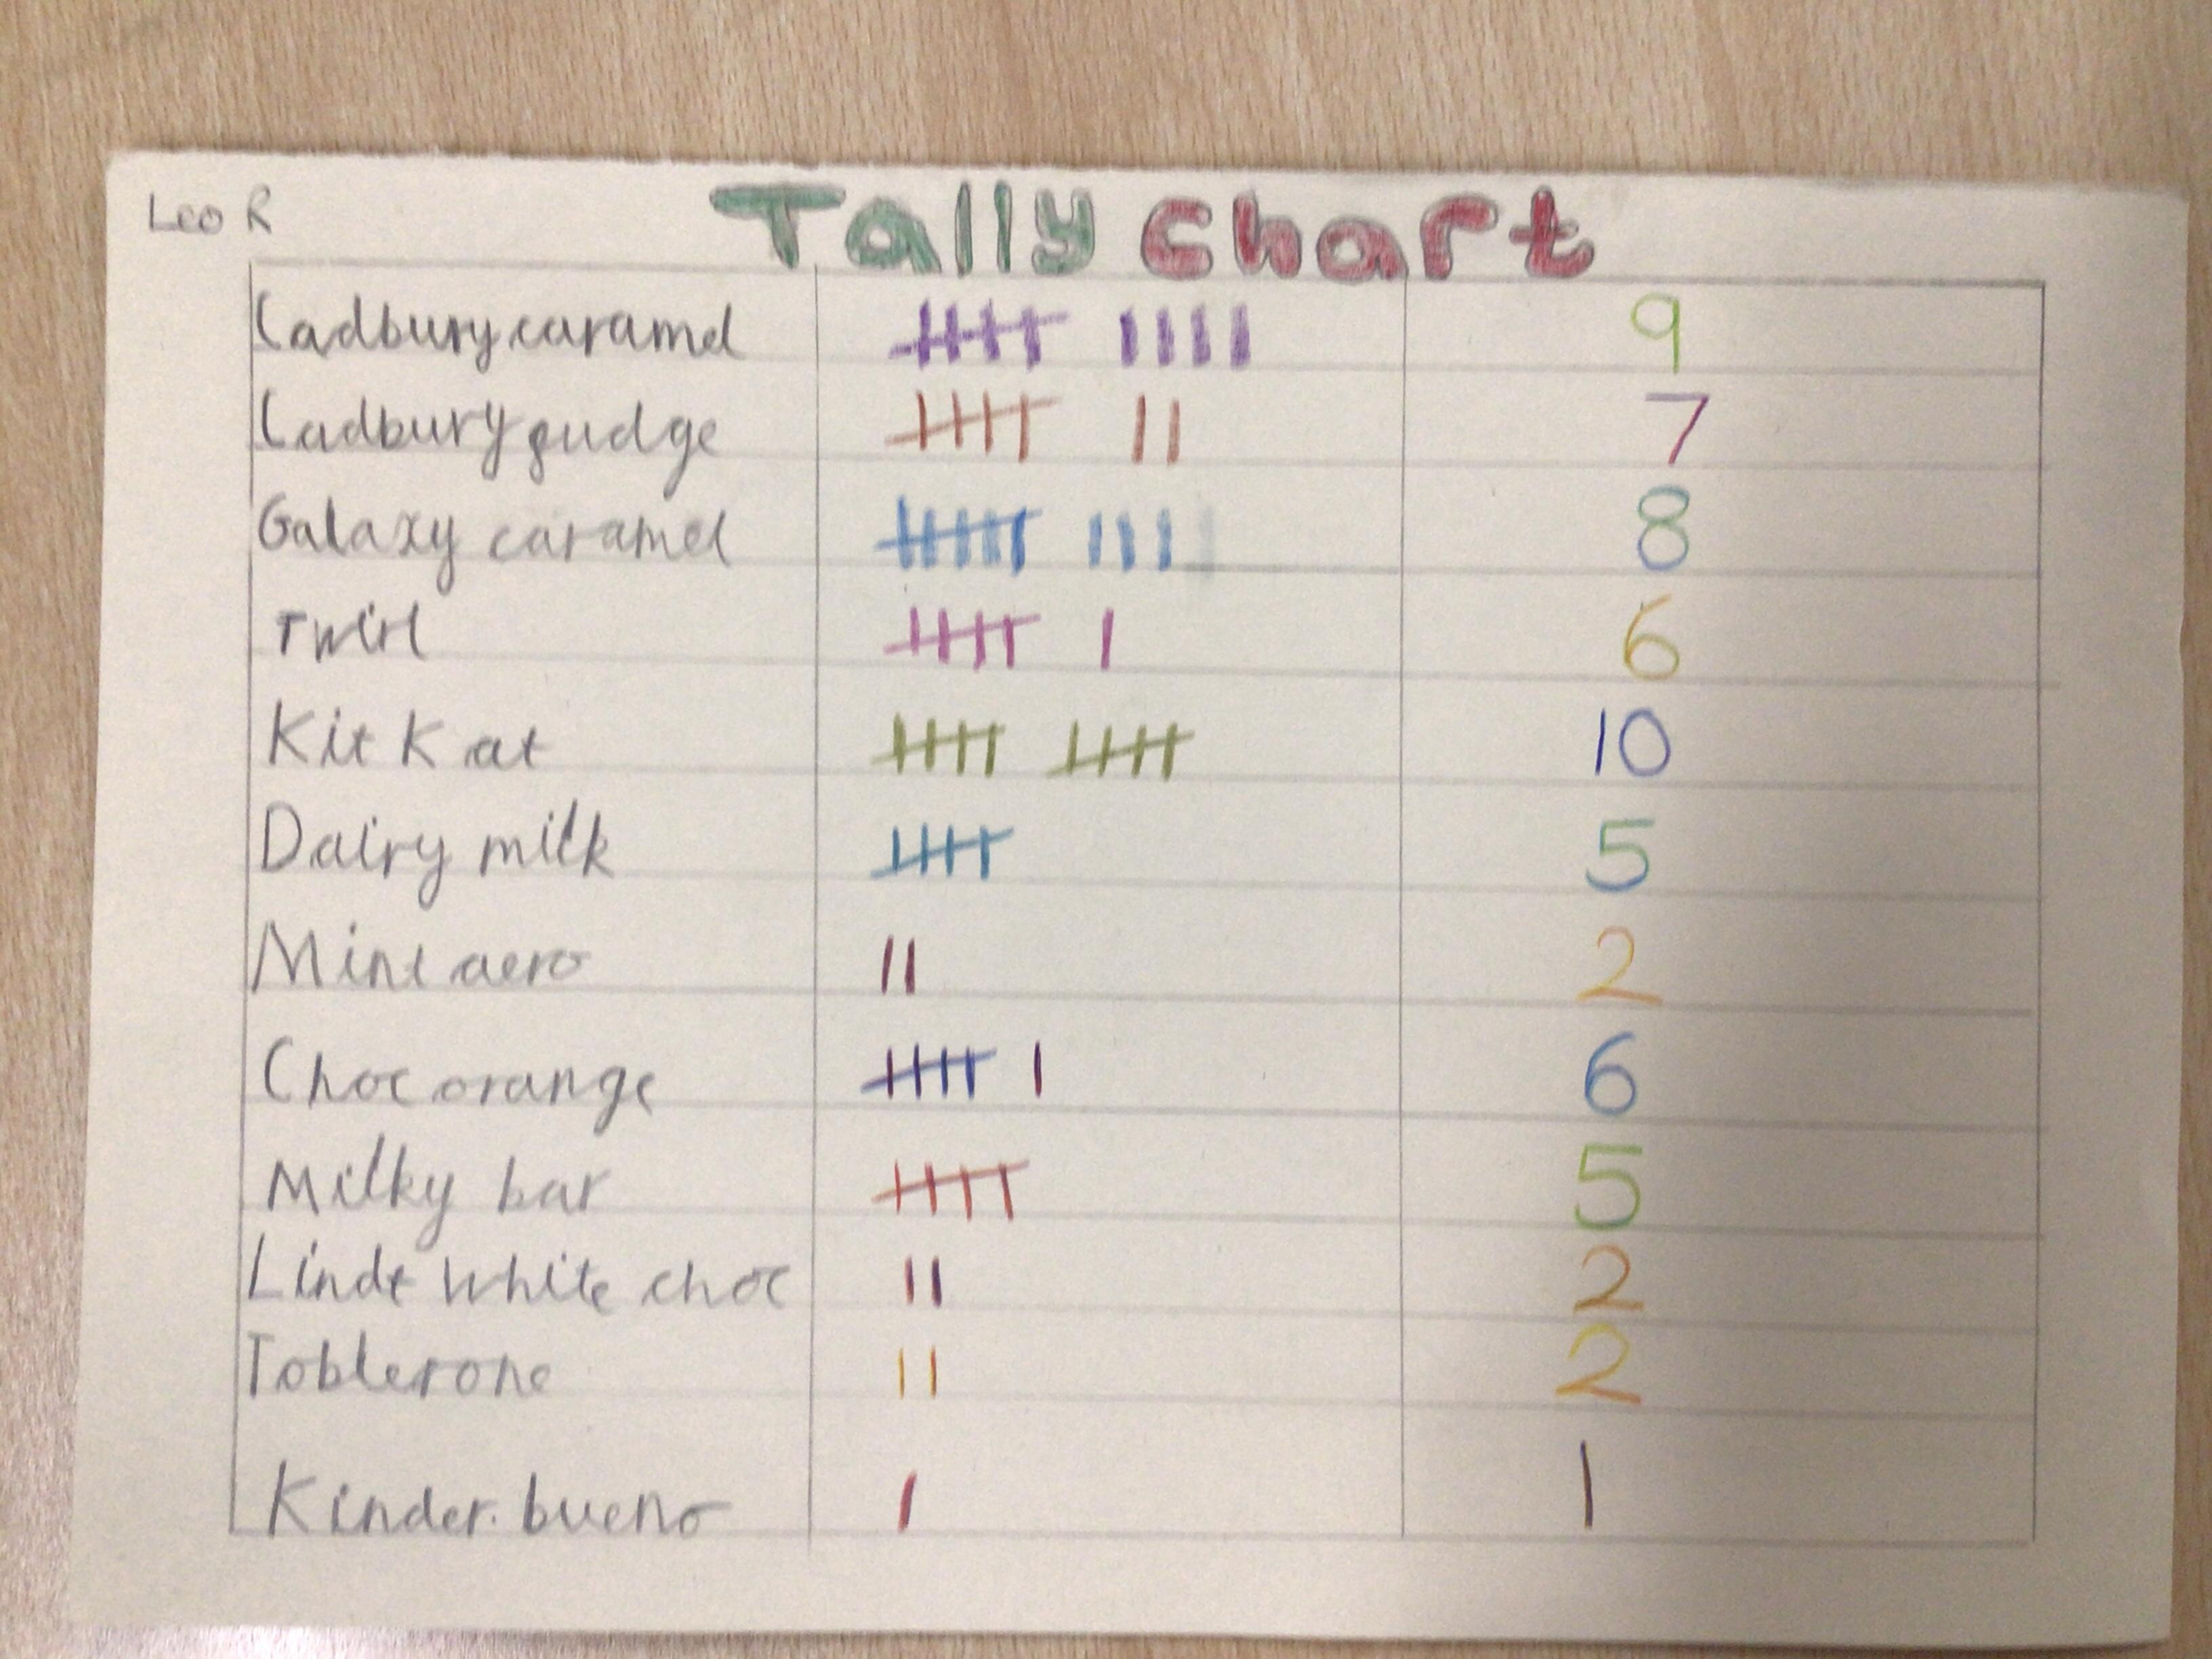 Leo R
Tally Chart
Cadbury caramel 9
Cadbury fudge 7
Galaxy caramel 8
Twirl 6
Kit Kat 10
Dairy milk 5
Mint aero 2
Choc orange 6
Milky bar 5
Lindt white choc 2
Toblerone 2
Kinder. bueno 1